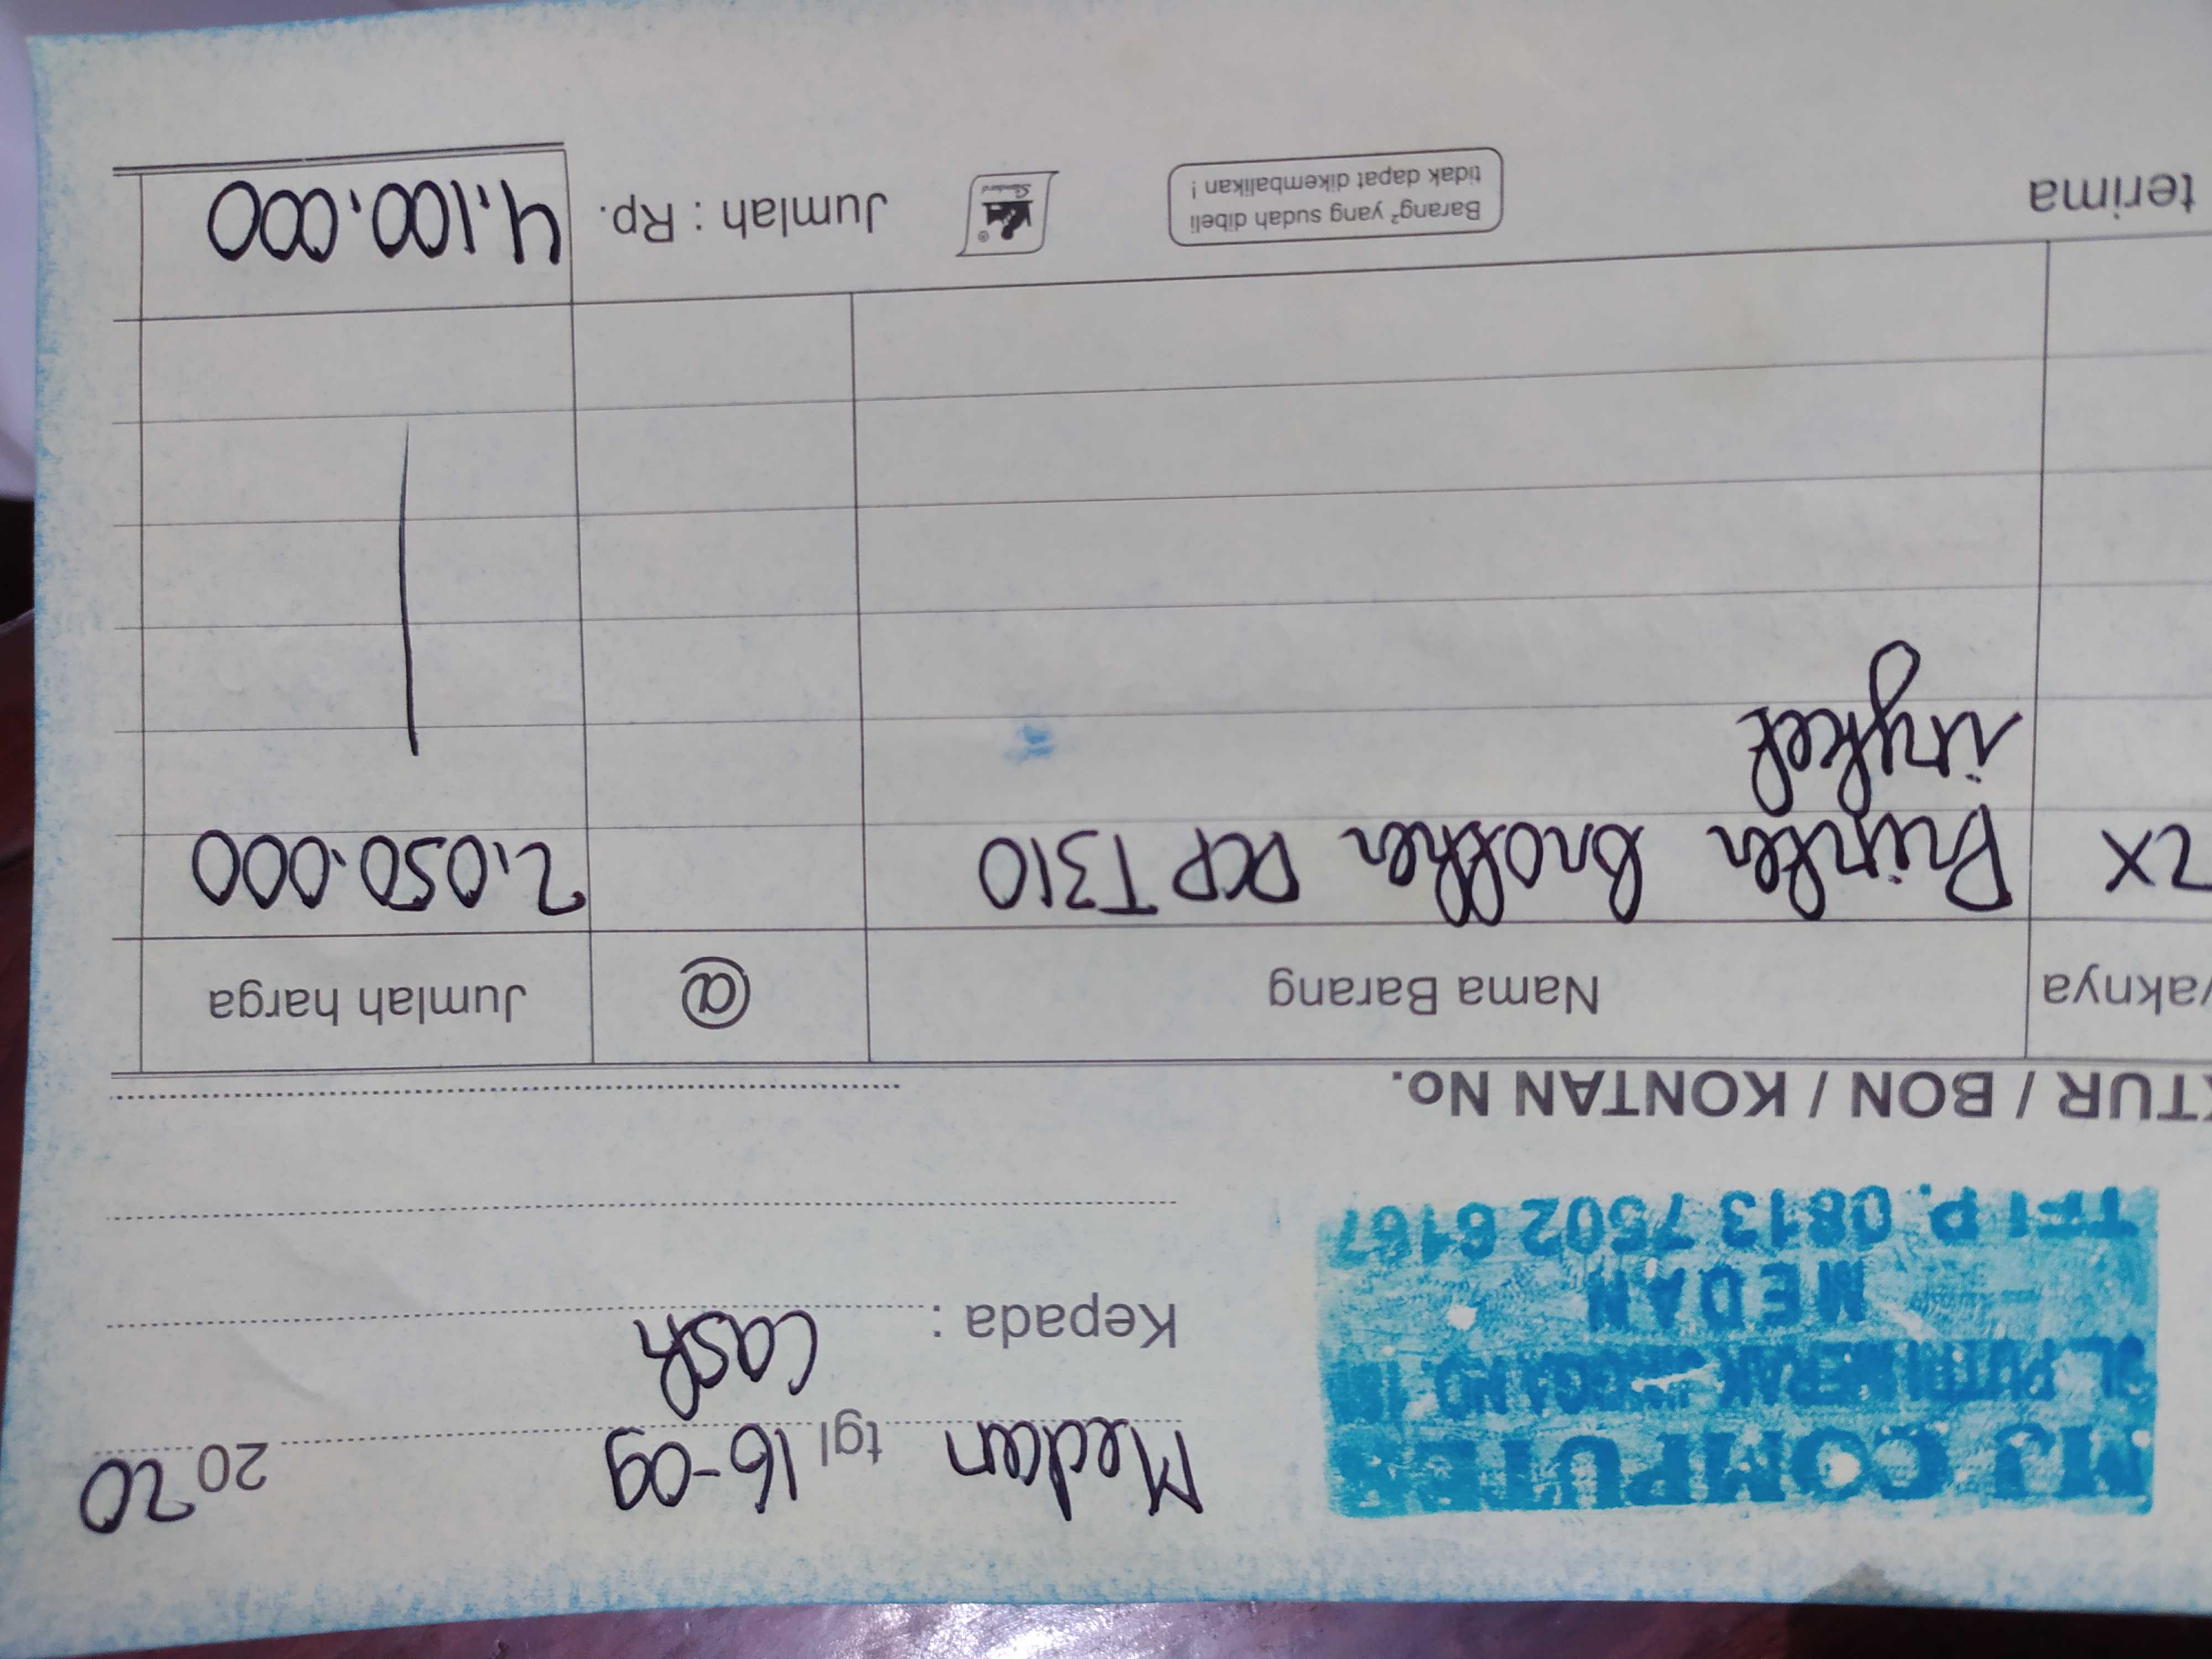 MJ COMPUTER
JL. PUTRI MERAK JINGGA NO.
MEDAN
TELP. 0813 7502 6167
Medan tgl 16-09 2020
Kepada : Cash
KTUR / BON / KONTAN No.
yaknya Nama Barang @ Jumlah harga
2x Printer Brother DCP T310 2.050.000
inkjet
terima
Barang² yang sudah dibeli
tidak dapat dikembalikan !
Jumlah : Rp. 4.100.000